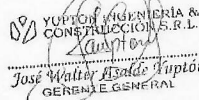 YUPTON INGENIERÍA &
CONSTRUCCIÓN S.R.L.
José Walter Asalde Yuptón
GERENTE GENERAL